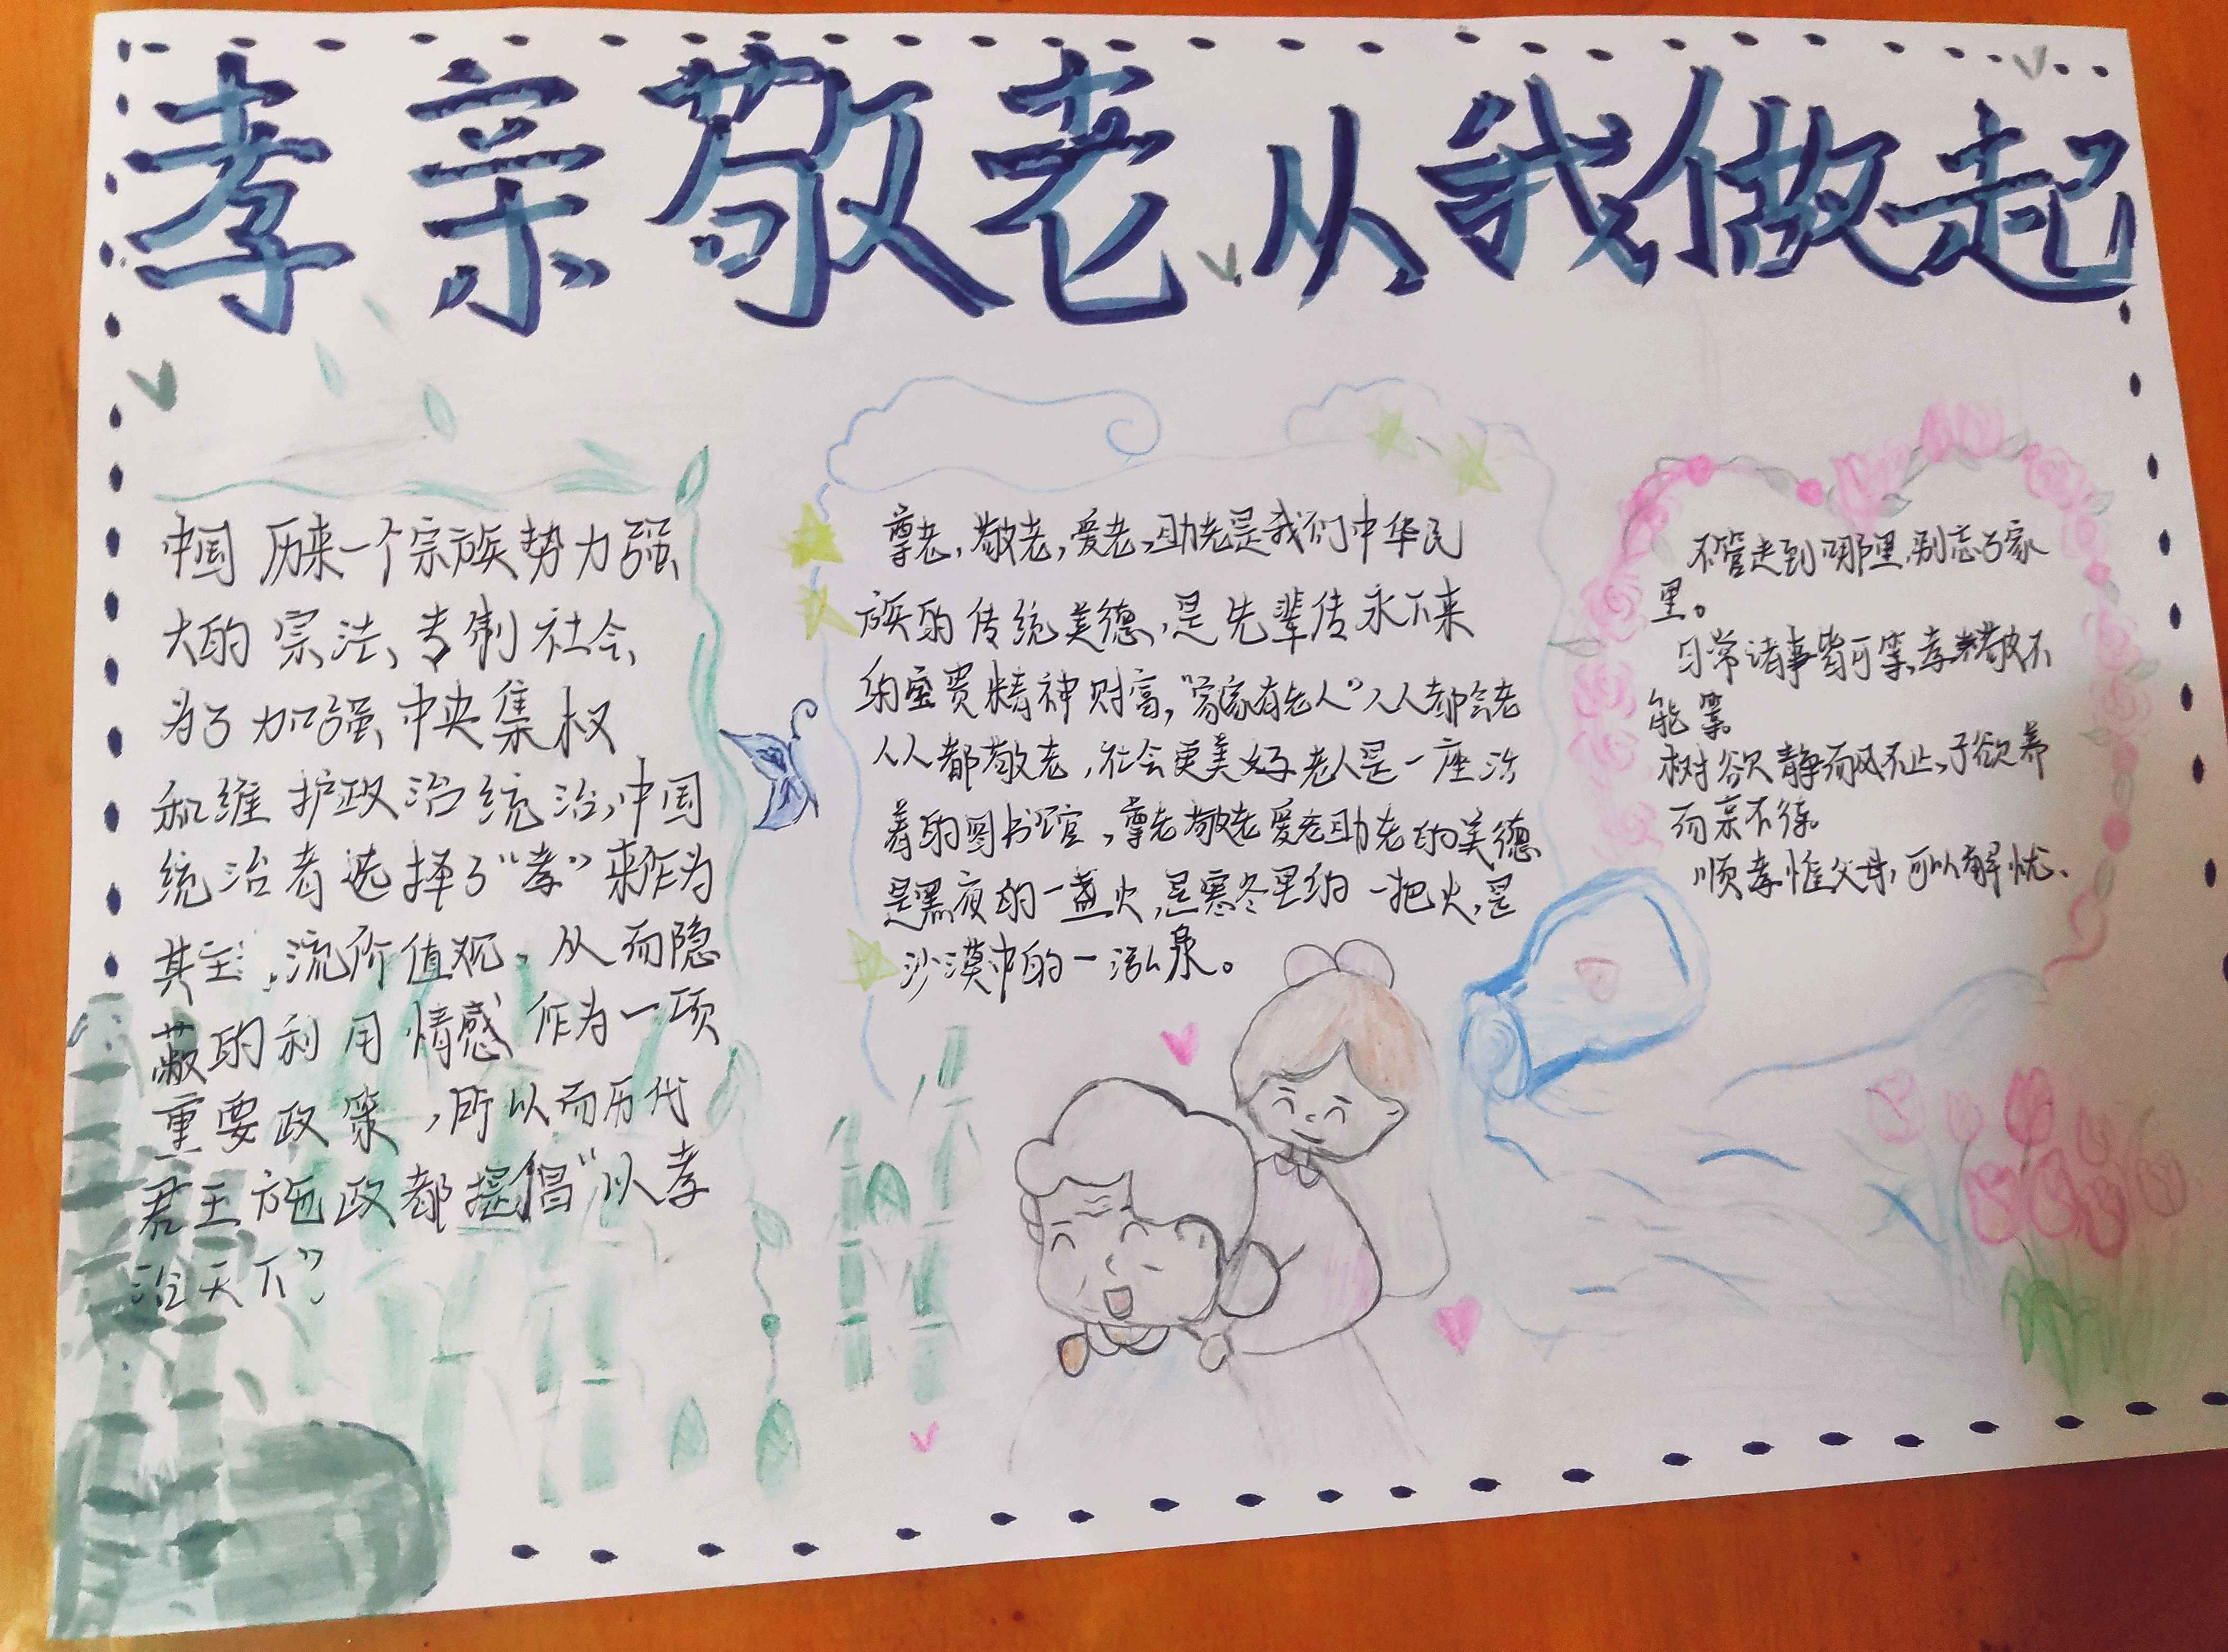 孝亲敬老从我做起
中国历来一个宗族势力强
大的宗法、专制社会
为了加强中央集权
和维护政治统治,中国
统治者选择了“孝”来作为
其主流价值观,从而隐
蔽的利用情感作为一项
重要政策,所以而历代
君王施政都提倡“以孝
治天下”
尊老,敬老,爱老,助老是我们中华民
族的传统美德,是先辈传承下来
的宝贵精神财富,“家家有老人”人人都会老
人人都敬老,社会更美好老人是一座活
着的图书馆,尊老敬老爱老助老的美德
是黑夜的一盏火,是寒冬里的一把火,是
沙漠中的一泓泉。
不管走到哪里,别忘了家
里。
日常诸事皆可等,孝敬不
能等
树欲静而风不止,子欲养
而亲不待。
顺孝惟父母,可以解忧、